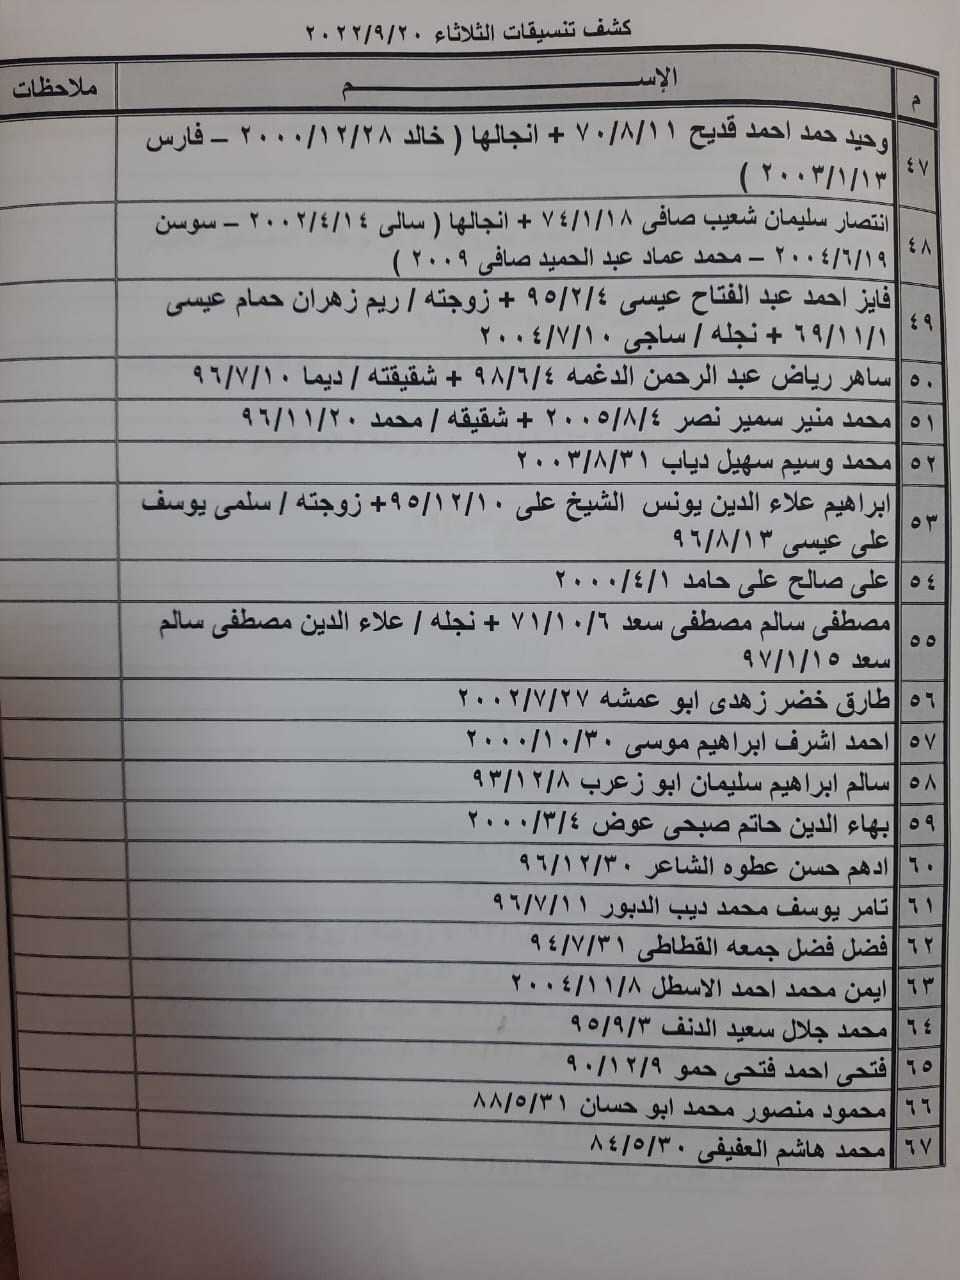 كشف تنسيقات الثلاثاء ٢٠٢٢/٩/٢٠
م الإســـم ملاحظات
٤٧ وحيد حمد احمد قديح ٧٠/٨/١١ + انجالها ( خالد ٢٠٠٠/١٢/٢٨ – فارس
٢٠٠٣/١/١٣ )
٤٨ انتصار سليمان شعيب صافى ٧٤/١/١٨ + انجالها ( سالى ٢٠٠٢/٤/١٤ – سوسن
٢٠٠٤/٦/١٩ – محمد عماد عبد الحميد صافى ٢٠٠٩ )
٤٩ فايز احمد عبد الفتاح عيسى ٩٥/٢/٤ + زوجته / ريم زهران حمام عيسى
٦٩/١١/١ + نجله / ساجى ٢٠٠٤/٧/١٠
٥٠ ساهر رياض عبد الرحمن الدغمه ٩٨/٦/٤ + شقيقته / ديما ٩٦/٧/١٠
٥١ محمد منير سمير نصر ٢٠٠٥/٨/٤ + شقيقه / محمد ٩٦/١١/٢٠
٥٢ محمد وسيم سهيل دياب ٢٠٠٣/٨/٣١
٥٣ ابراهيم علاء الدين يونس الشيخ على ٩٥/١٢/١٠+ زوجته / سلمى يوسف
على عيسى ٩٦/٨/١٣
٥٤ على صالح على حامد ٢٠٠٠/٤/١
٥٥ مصطفى سالم مصطفى سعد ٧١/١٠/٦ + نجله / علاء الدين مصطفى سالم
سعد ٩٧/١/١٥
٥٦ طارق خضر زهدى ابو عمشه ٢٠٠٢/٧/٢٧
٥٧ احمد اشرف ابراهيم موسى ٢٠٠٠/١٠/٣٠
٥٨ سالم ابراهيم سليمان ابو زعرب ٩٣/١٢/٨
٥٩ بهاء الدين حاتم صبحى عوض ٢٠٠٠/٣/٤
٦٠ ادهم حسن عطوه الشاعر ٩٦/١٢/٣٠
٦١ تامر يوسف محمد ديب الدبور ٩٦/٧/١١
٦٢ فضل فضل جمعه القطاطى ٩٤/٧/٣١
٦٣ ايمن محمد احمد الاسطل ٢٠٠٤/١١/٨
٦٤ محمد جلال سعيد الدنف ٩٥/٩/٣
٦٥ فتحى احمد فتحى حمو ٩٠/١٢/٩
٦٦ محمود منصور محمد ابو حسان ٨٨/٥/٣١
٦٧ محمد هاشم العفيفى ٨٤/٥/٣٠